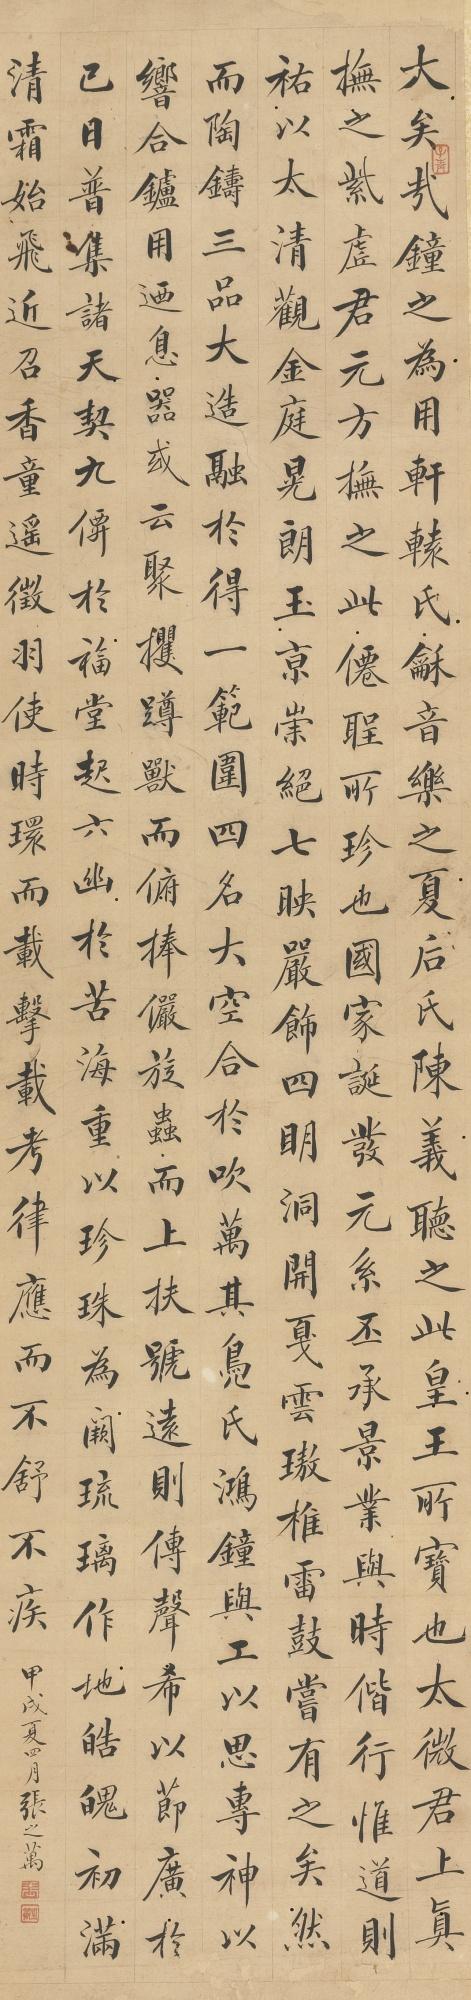 大矣哉鐘之為用軒轅氏龢音樂之夏后氏陳義聽之此皇王所寶也太微君上真
撫之紫虛君元方撫之此僊聖所珍也國家誕發元系丕承景業與時偕行惟道則
祐以太清觀金庭晃朗玉京崇絕七映嚴飾四明洞開戛雲璈椎雷鼓嘗有之矣然
而陶鑄三品大造融於得一範圍四名大空合於吹萬其鳧氏鴻鐘與工以思專神以
響合鑪用迺息器或云聚攫蹲獸而俯捧儼旋蟲而上扶號遠則傳聲希以節廣於
己日普集諸天契九僊於福堂起六幽於苦海重以珍珠為闕琉璃作地皓魄初滿
清霜始飛近召香童遥徵羽使時環而載擊載考律應而不舒不疾
甲戌夏四月張之萬